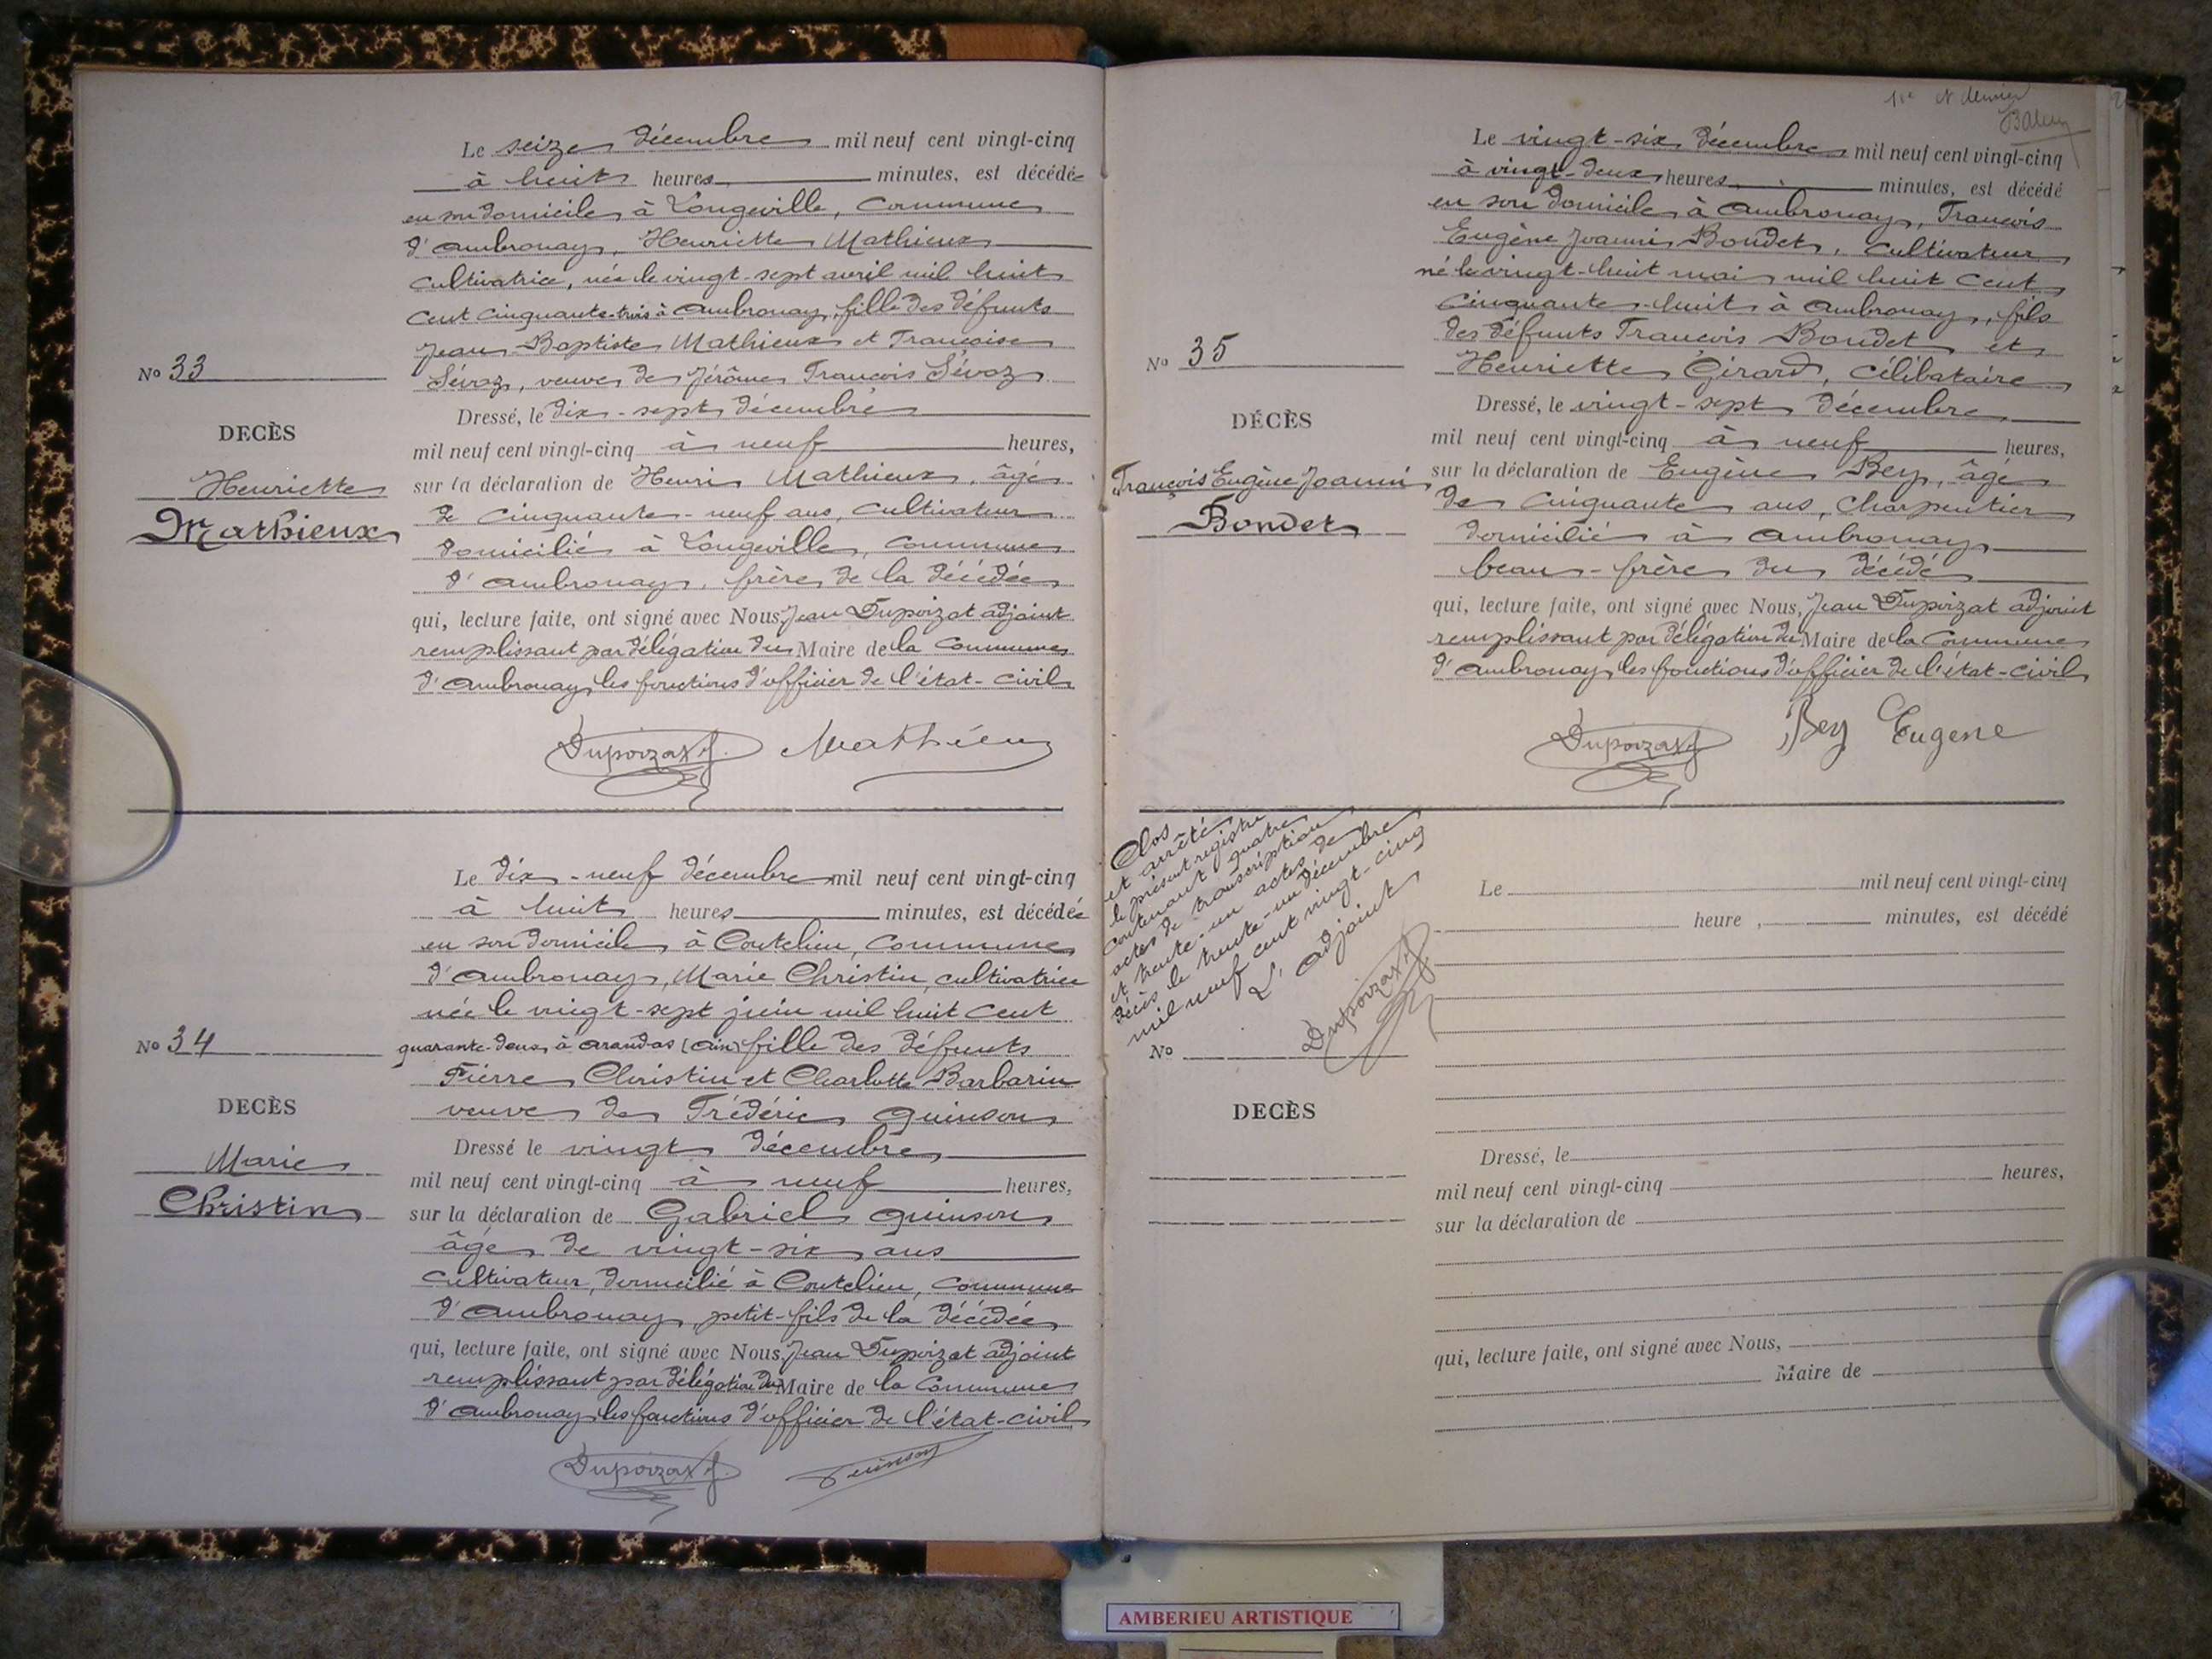 Le seize décembre mil neuf cent vingt-cinq
à huit heures minutes, est décédée
en son domicile à Longeville, Commune
d'Ambronay, Henriette Mathieux
cultivatrice, née le vingt-sept avril mil huit
cent cinquante-trois à Ambronay, fille des défunts
Jean-Baptiste Mathieux et Françoise
Sévoz, veuve de Jérôme François Sévoz
No 33
DECÈS
Henriette
Mathieux
Dressé, le dix-sept décembre
mil neuf cent vingt-cinq à neuf heures,
sur la déclaration de Henri Mathieux, âgé
de cinquante-neuf ans, cultivateur
domicilié à Longeville, Commune
d'Ambronay, frère de la décédée
qui, lecture faite, ont signé avec Nous, Jean Dupoizat adjoint
remplissant par délégation du Maire de la Commune
d'Ambronay les fonctions d'officier de l'état-civil
Dupoizat J. Mathieux
Le dix-neuf décembre mil neuf cent vingt-cinq
à huit heures minutes, est décédée
en son domicile à Coutelieu, Commune
d'Ambronay, Marie Christin, cultivatrice
née le vingt-sept juin mil huit cent
quarante-deux à Arandas (Ain) fille des défunts
Pierre Christin et Charlotte Barbarin
veuve de Frédéric Quinson
No 34
DECÈS
Marie
Christin
Dressé le vingt décembre
mil neuf cent vingt-cinq à neuf heures,
sur la déclaration de Gabriel Quinson
âgé de vingt-six ans
cultivateur, domicilié à Coutelieu, Commune
d'Ambronay, petit-fils de la décédée
qui, lecture faite, ont signé avec Nous, Jean Dupoizat adjoint
remplissant par délégation du Maire de la Commune
d'Ambronay les fonctions d'officier de l'état-civil
Dupoizat J. Quinson
et dernier
Le vingt-six décembre mil neuf cent vingt-cinq
à vingt-deux heures minutes, est décédé
en son domicile à Ambronay, François
Eugène Joanni Bondet, cultivateur
né le vingt-huit mai mil huit cent
cinquante-huit à Ambronay, fils
des défunts François Bondet et
Henriette Girard, célibataire
No 35
DÉCÈS
François Eugène Joanni
Bondet
Dressé, le vingt-sept décembre
mil neuf cent vingt-cinq à neuf heures,
sur la déclaration de Eugène Bey, âgé
de cinquante ans, charpentier
domicilié à Ambronay
beau-frère du décédé
qui, lecture faite, ont signé avec Nous, Jean Dupoizat adjoint
remplissant par délégation du Maire de la Commune
d'Ambronay les fonctions d'officier de l'état-civil
Dupoizat J. Bey Eugene
Clos
et arrêté
le présent registre
contenant quatre
actes de transcription
et trente-un actes de
décès le trente-un décembre
mil neuf cent vingt-cinq
L'adjoint
Dupoizat J.
Le mil neuf cent vingt-cinq
heure , minutes, est décédé
No
DECÈS
Dressé, le
mil neuf cent vingt-cinq heures,
sur la déclaration de
qui, lecture faite, ont signé avec Nous,
Maire de
AMBERIEU ARTISTIQUE